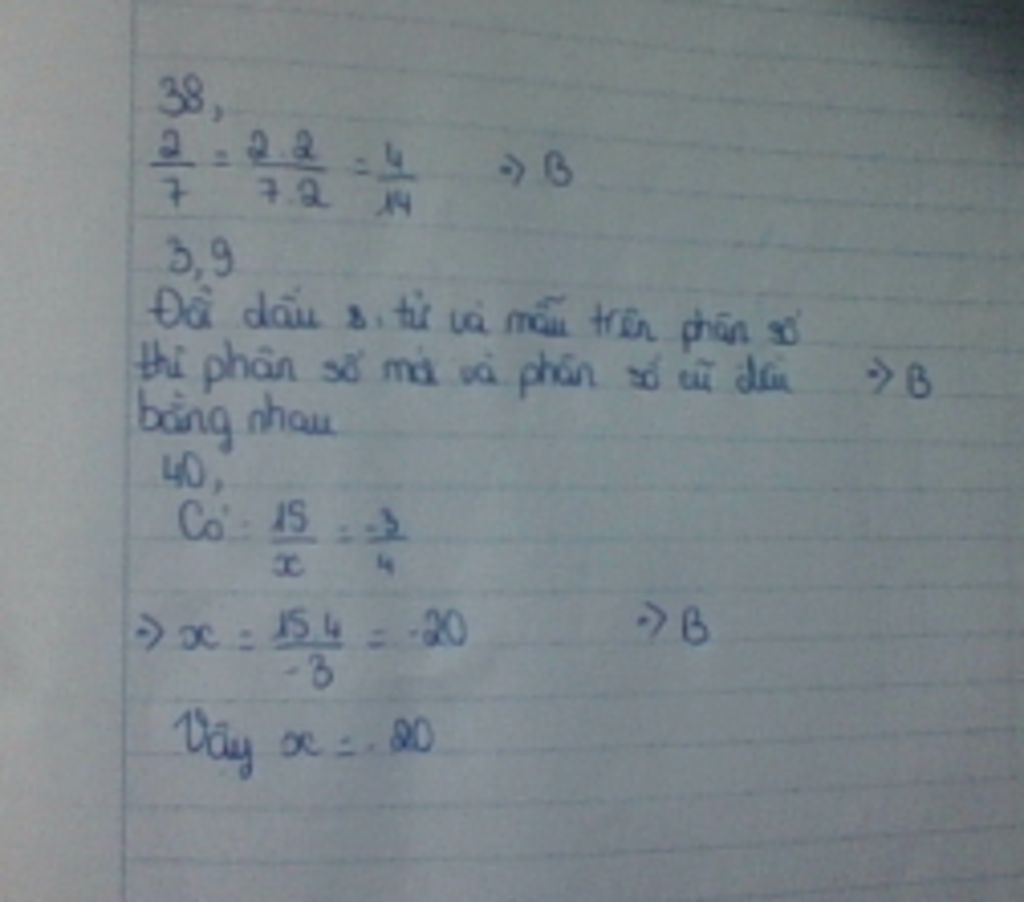 38,
2/7 = 2.2/7.2 = 4/14 => B
3,9
Đổi dấu s. tử và mẫu trên phân số
thì phân số mới và phân số cũ đều => B
bằng nhau
40,
Có: 15/x = -3/4
=> x = 15.4/-3 = -20 => B
Vậy x = -20